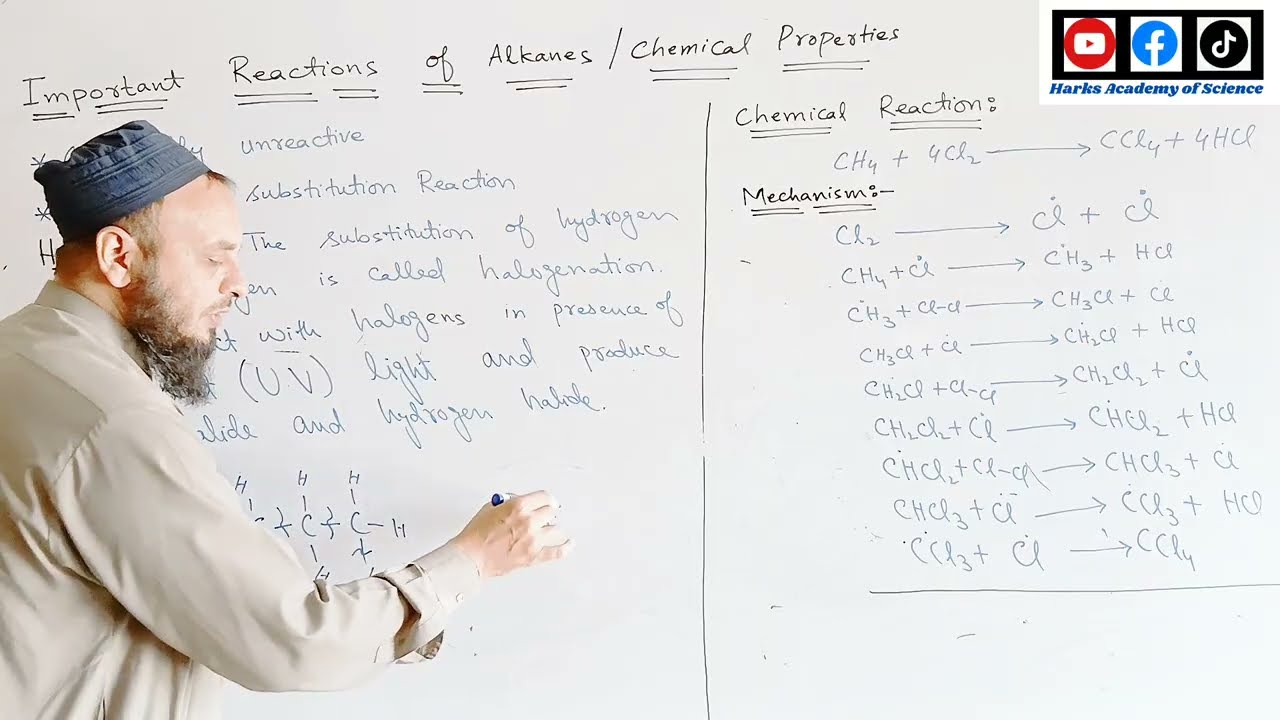 Important Reactions of Alkanes / Chemical Properties
* unreactive
* substitution Reaction
The substitution of hydrogen
is called halogenation.
with halogens in presence of
(U.V) light and produce
and hydrogen halide.
H H H
C C – H
Chemical Reaction:
CH4 + 4Cl2 → CCl4 + 4HCl
Mechanism:-
Cl2 → Cl̇ + Cl̇
CH4 + Cl̇ → ĊH3 + HCl
ĊH3 + Cl-Cl → CH3Cl + Cl̇
CH3Cl + Cl̇ → ĊH2Cl + HCl
ĊH2Cl + Cl-Cl → CH2Cl2 + Cl̇
CH2Cl2 + Cl̇ → ĊHCl2 + HCl
ĊHCl2 + Cl-Cl → CHCl3 + Cl̇
CHCl3 + Cl̇ → ĊCl3 + HCl
ĊCl3 + Cl̇ → CCl4
Harks Academy of Science